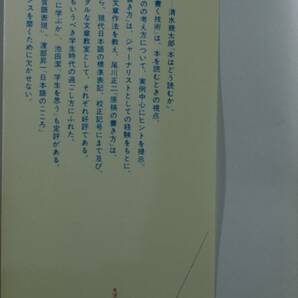 清水幾太郎『本はどう読むか』
書く技術』は、本を読むときの視点、
のの考え方について、実例中心にヒントを提示。
き方』は、ジャーナリストとしての経験をもとに、
文章作法を教え、尾川正二『原稿の書き方』は、
ら、現代日本語の標準表記、校正記号にまで及び、
タルな文章教室として、それぞれ好評である。
もいうべき学生時代の過ごし方にふれた、
に学ぶか』、池田潔『学生を思う』も定評がある。
言語表現』、渡部昇一『日本語のこころ』
スを磨くために欠かせない。